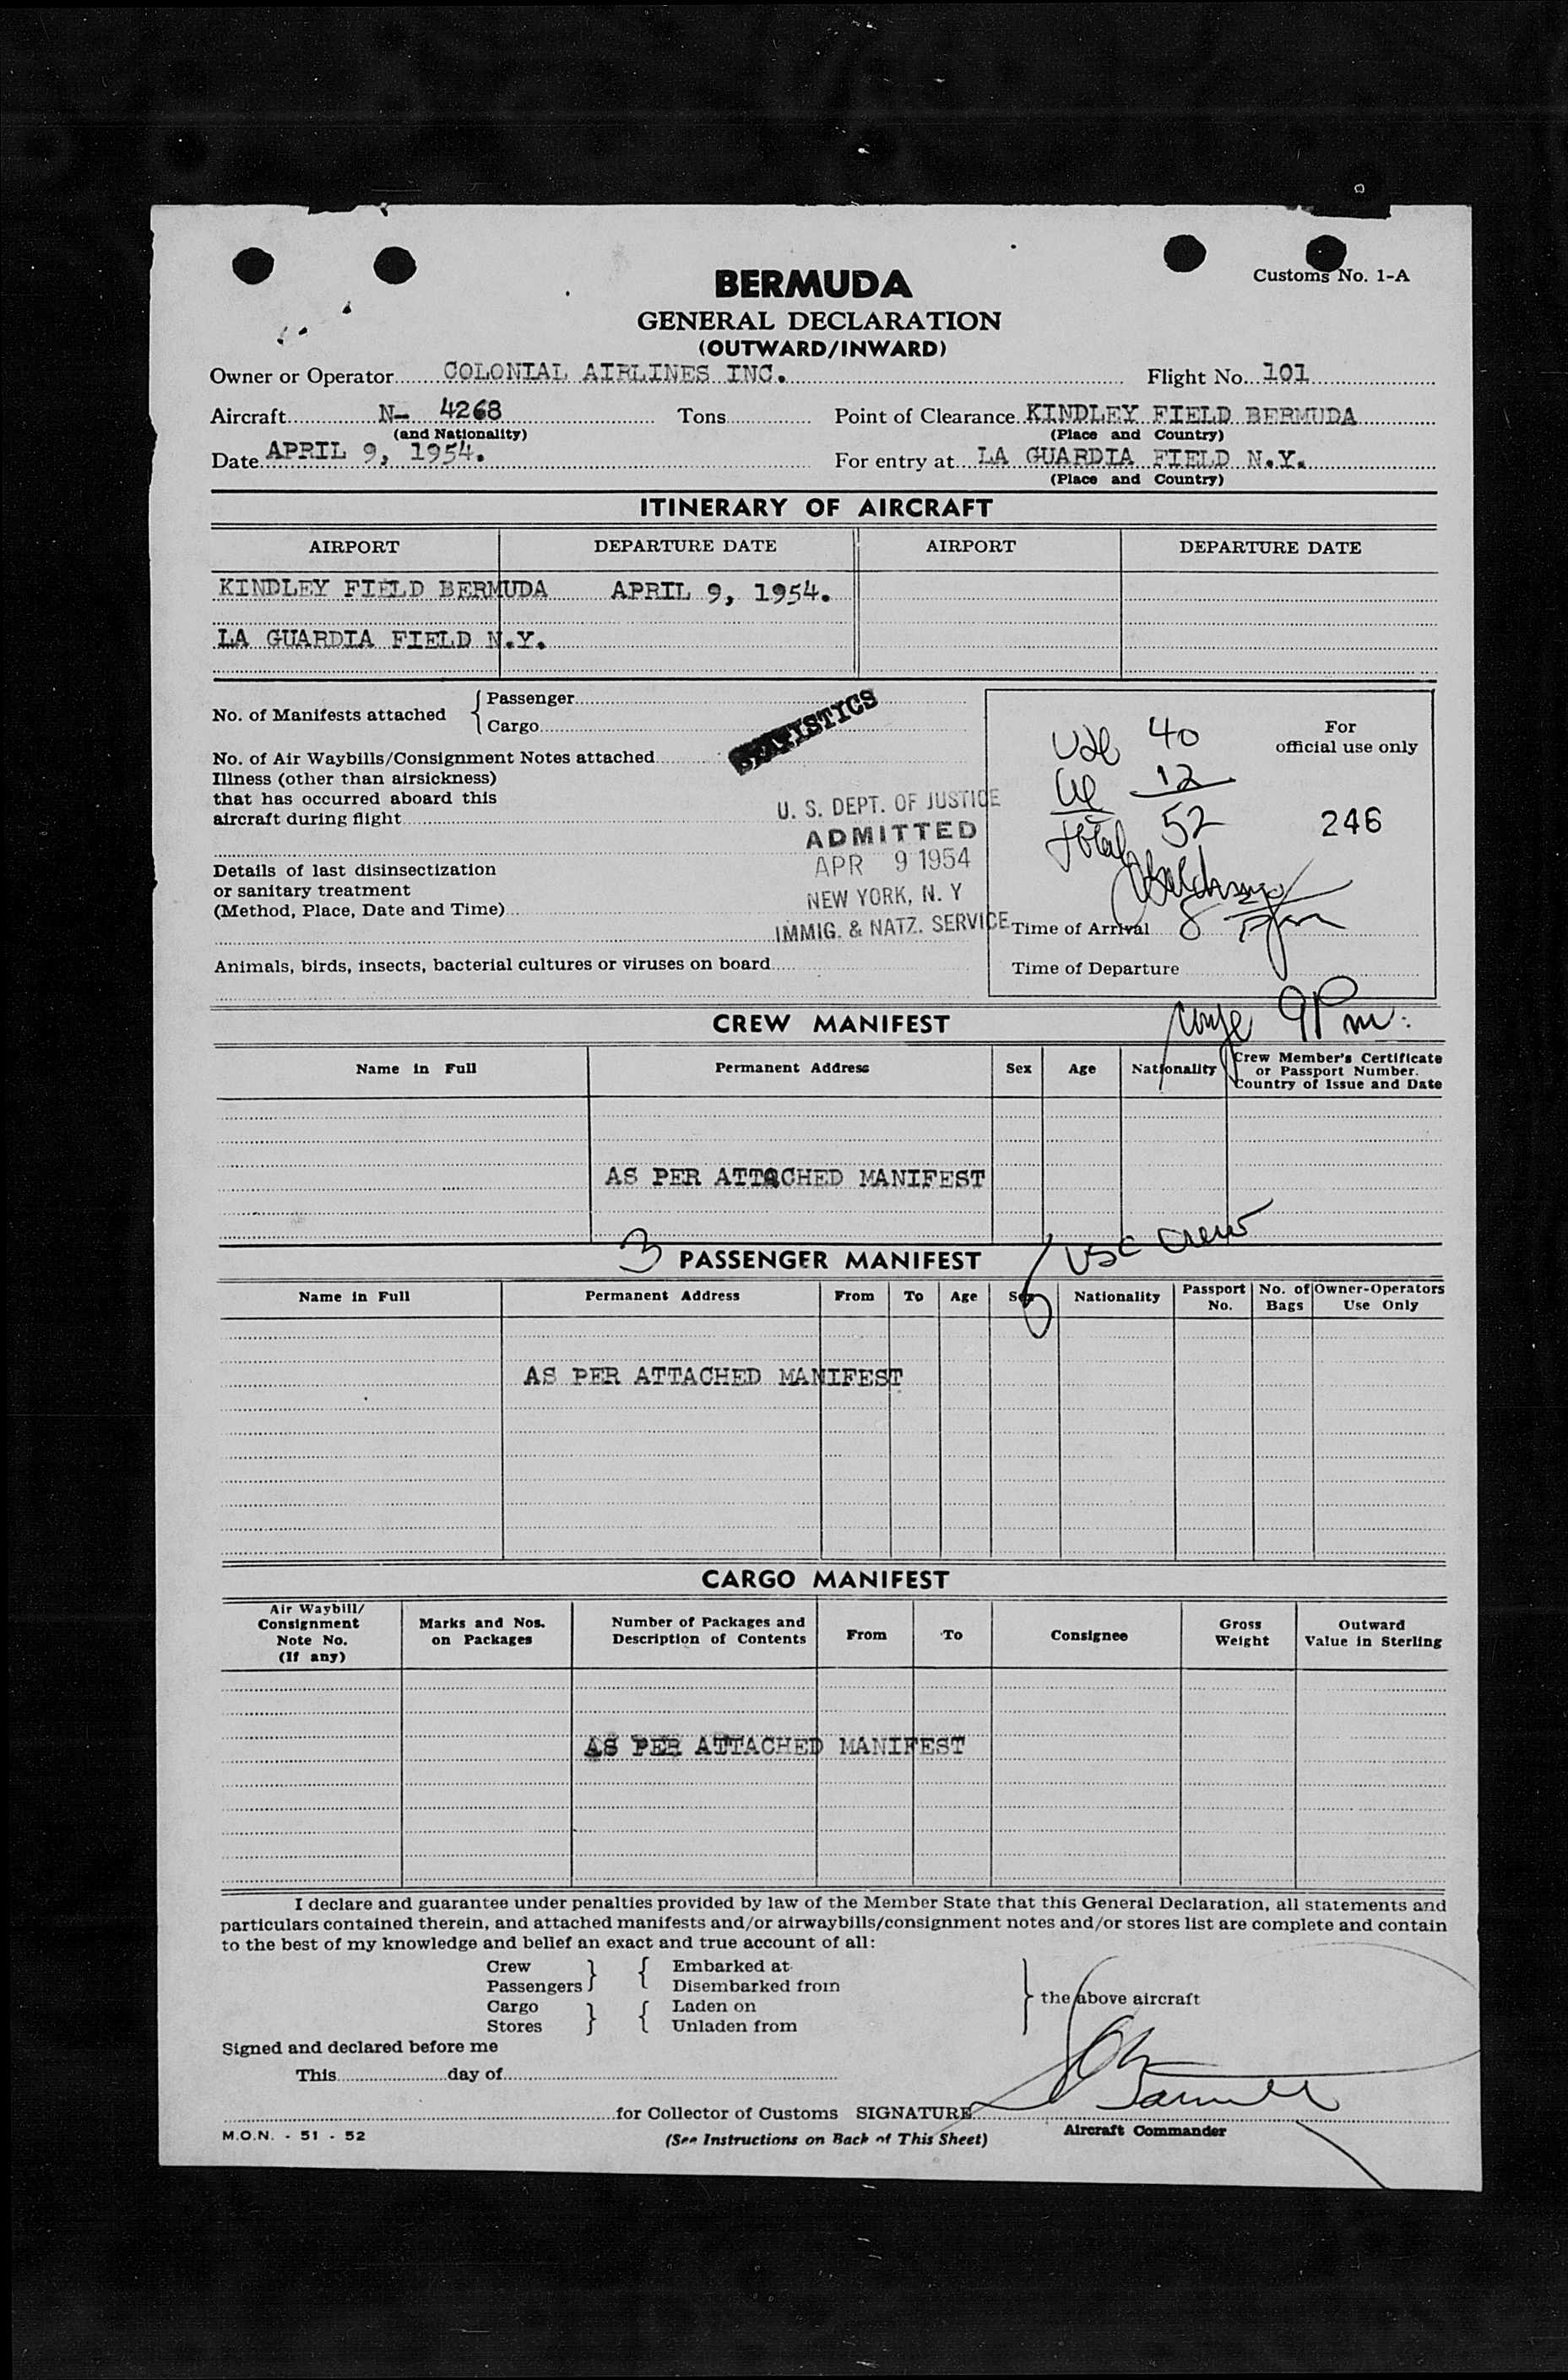 BERMUDA
Customs No. 1-A
GENERAL DECLARATION
(OUTWARD/INWARD)
Owner or Operator COLONIAL AIRLINES INC. Flight No. 101
Aircraft N- 4268 Tons Point of Clearance KINDLEY FIELD BERMUDA
(and Nationality) (Place and Country)
Date APRIL 9, 1954. For entry at LA GUARDIA FIELD N.Y.
(Place and Country)
ITINERARY OF AIRCRAFT
AIRPORT DEPARTURE DATE AIRPORT DEPARTURE DATE
KINDLEY FIELD BERMUDA APRIL 9, 1954.
LA GUARDIA FIELD N.Y.
No. of Manifests attached { Passenger
Cargo
STATISTICS
No. of Air Waybills/Consignment Notes attached
Illness (other than airsickness)
that has occurred aboard this
aircraft during flight
U. S. DEPT. OF JUSTICE
ADMITTED
APR 9 1954
NEW YORK, N. Y
IMMIG. & NATZ. SERVICE
Details of last disinsectization
or sanitary treatment
(Method, Place, Date and Time)
Animals, birds, insects, bacterial cultures or viruses on board
For
official use only
40
12
total 52
246
Time of Arrival 8
Time of Departure
9 Pm.
CREW MANIFEST
Name in Full Permanent Address Sex Age Nationality Crew Member's Certificate
or Passport Number.
Country of Issue and Date
AS PER ATTACHED MANIFEST
3 USC Crew
PASSENGER MANIFEST
Name in Full Permanent Address From To Age Sex Nationality Passport No. No. of Bags Owner-Operators Use Only
AS PER ATTACHED MANIFEST
CARGO MANIFEST
Air Waybill/ Consignment Note No. (If any) Marks and Nos. on Packages Number of Packages and Description of Contents From To Consignee Gross Weight Outward Value in Sterling
AS PER ATTACHED MANIFEST
I declare and guarantee under penalties provided by law of the Member State that this General Declaration, all statements and
particulars contained therein, and attached manifests and/or airwaybills/consignment notes and/or stores list are complete and contain
to the best of my knowledge and belief an exact and true account of all:
Crew } { Embarked at
Passengers Disembarked from
the above aircraft
Cargo } { Laden on
Stores Unladen from
Signed and declared before me
This day of
for Collector of Customs SIGNATURE
M.O.N. - 51 - 52 (See Instructions on Back of This Sheet) Aircraft Commander